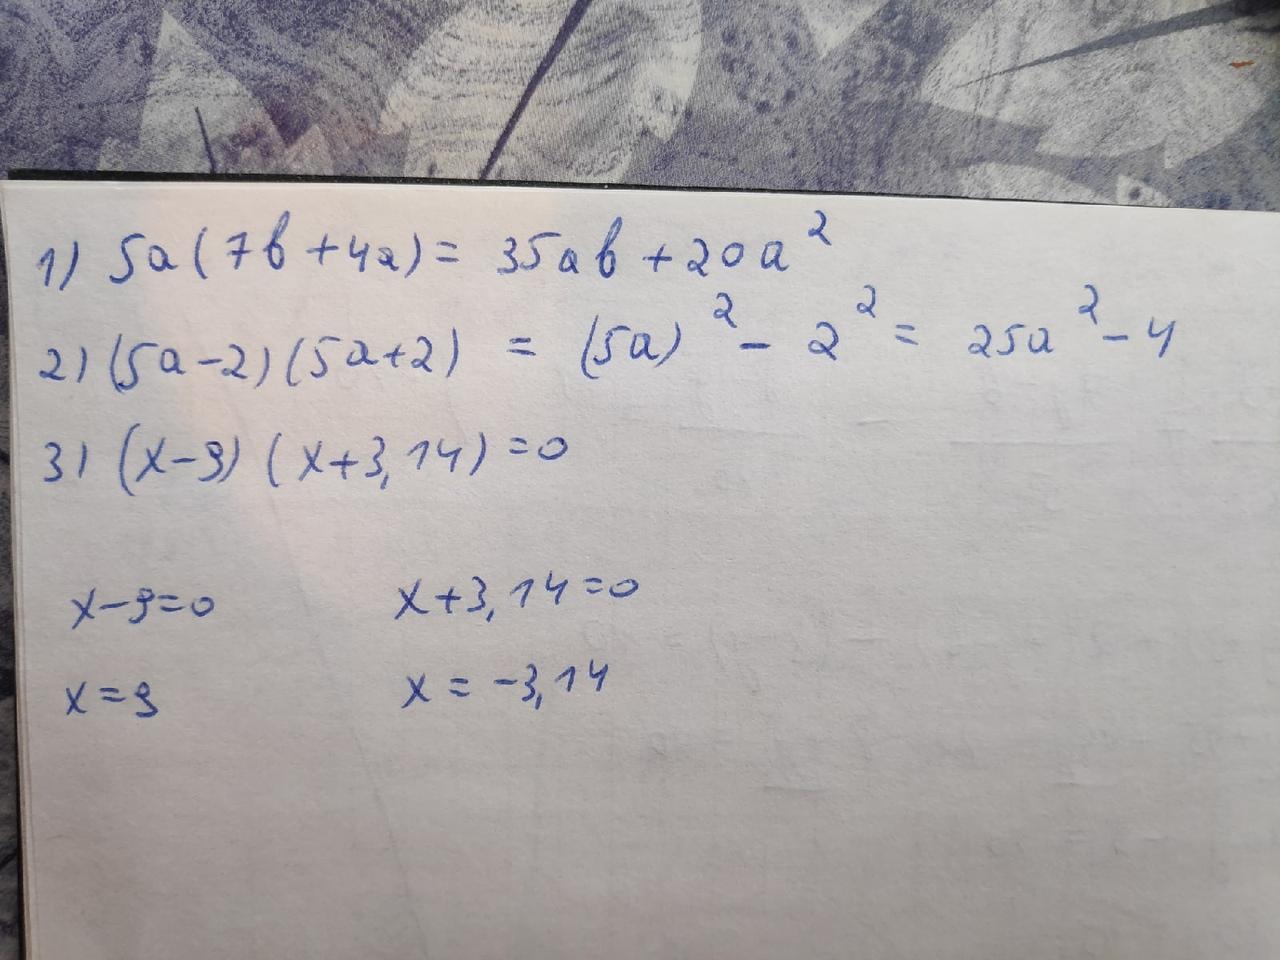 1) 5a(7b+4a) = 35ab + 20a²
2) (5a-2)(5a+2) = (5a)² - 2² = 25a² - 4
3) (x-9) (x+3,14) = 0
x-9=0 x+3,14=0
x=9 x = -3,14